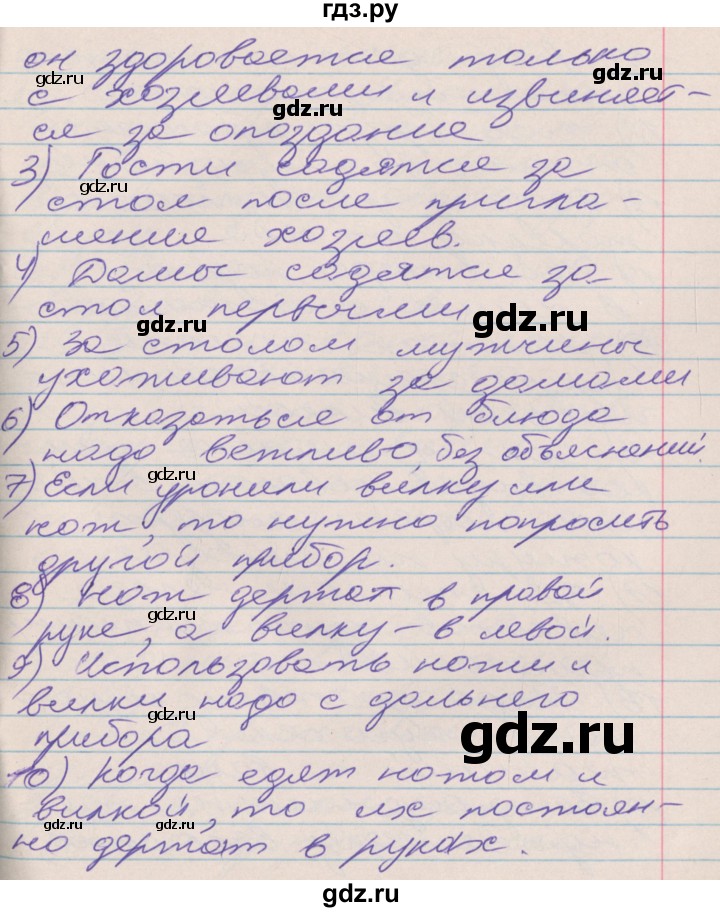 гдз.ру
он здоровается только
gdz.ru
с хозяевами и извиняет-
gdz.ru
ся за опоздание
3) Гости садятся за
gdz.ru
стол после пригла-
шения хозяев.
4) Дамы садятся за
стол первыми
gdz.ru
gdz.ru
5) За столом мужчины
ухаживают за дамами
6) Отказаться от блюда
надо вежливо без объяснений.
gdz.ru
7) Если уронили вилку или
нож, то нужно попросить
другой прибор.
gdz.ru
8) Нож держат в правой
gdz.ru
руке, а вилку - в левой.
9) Использовать ножи и
вилки надо с дальнего
gdz.ru
прибора
gdz.ru
10) Когда едят ножом и
gdz.ru
вилкой, то их постоян-
но держат в руках.
gdz.ru